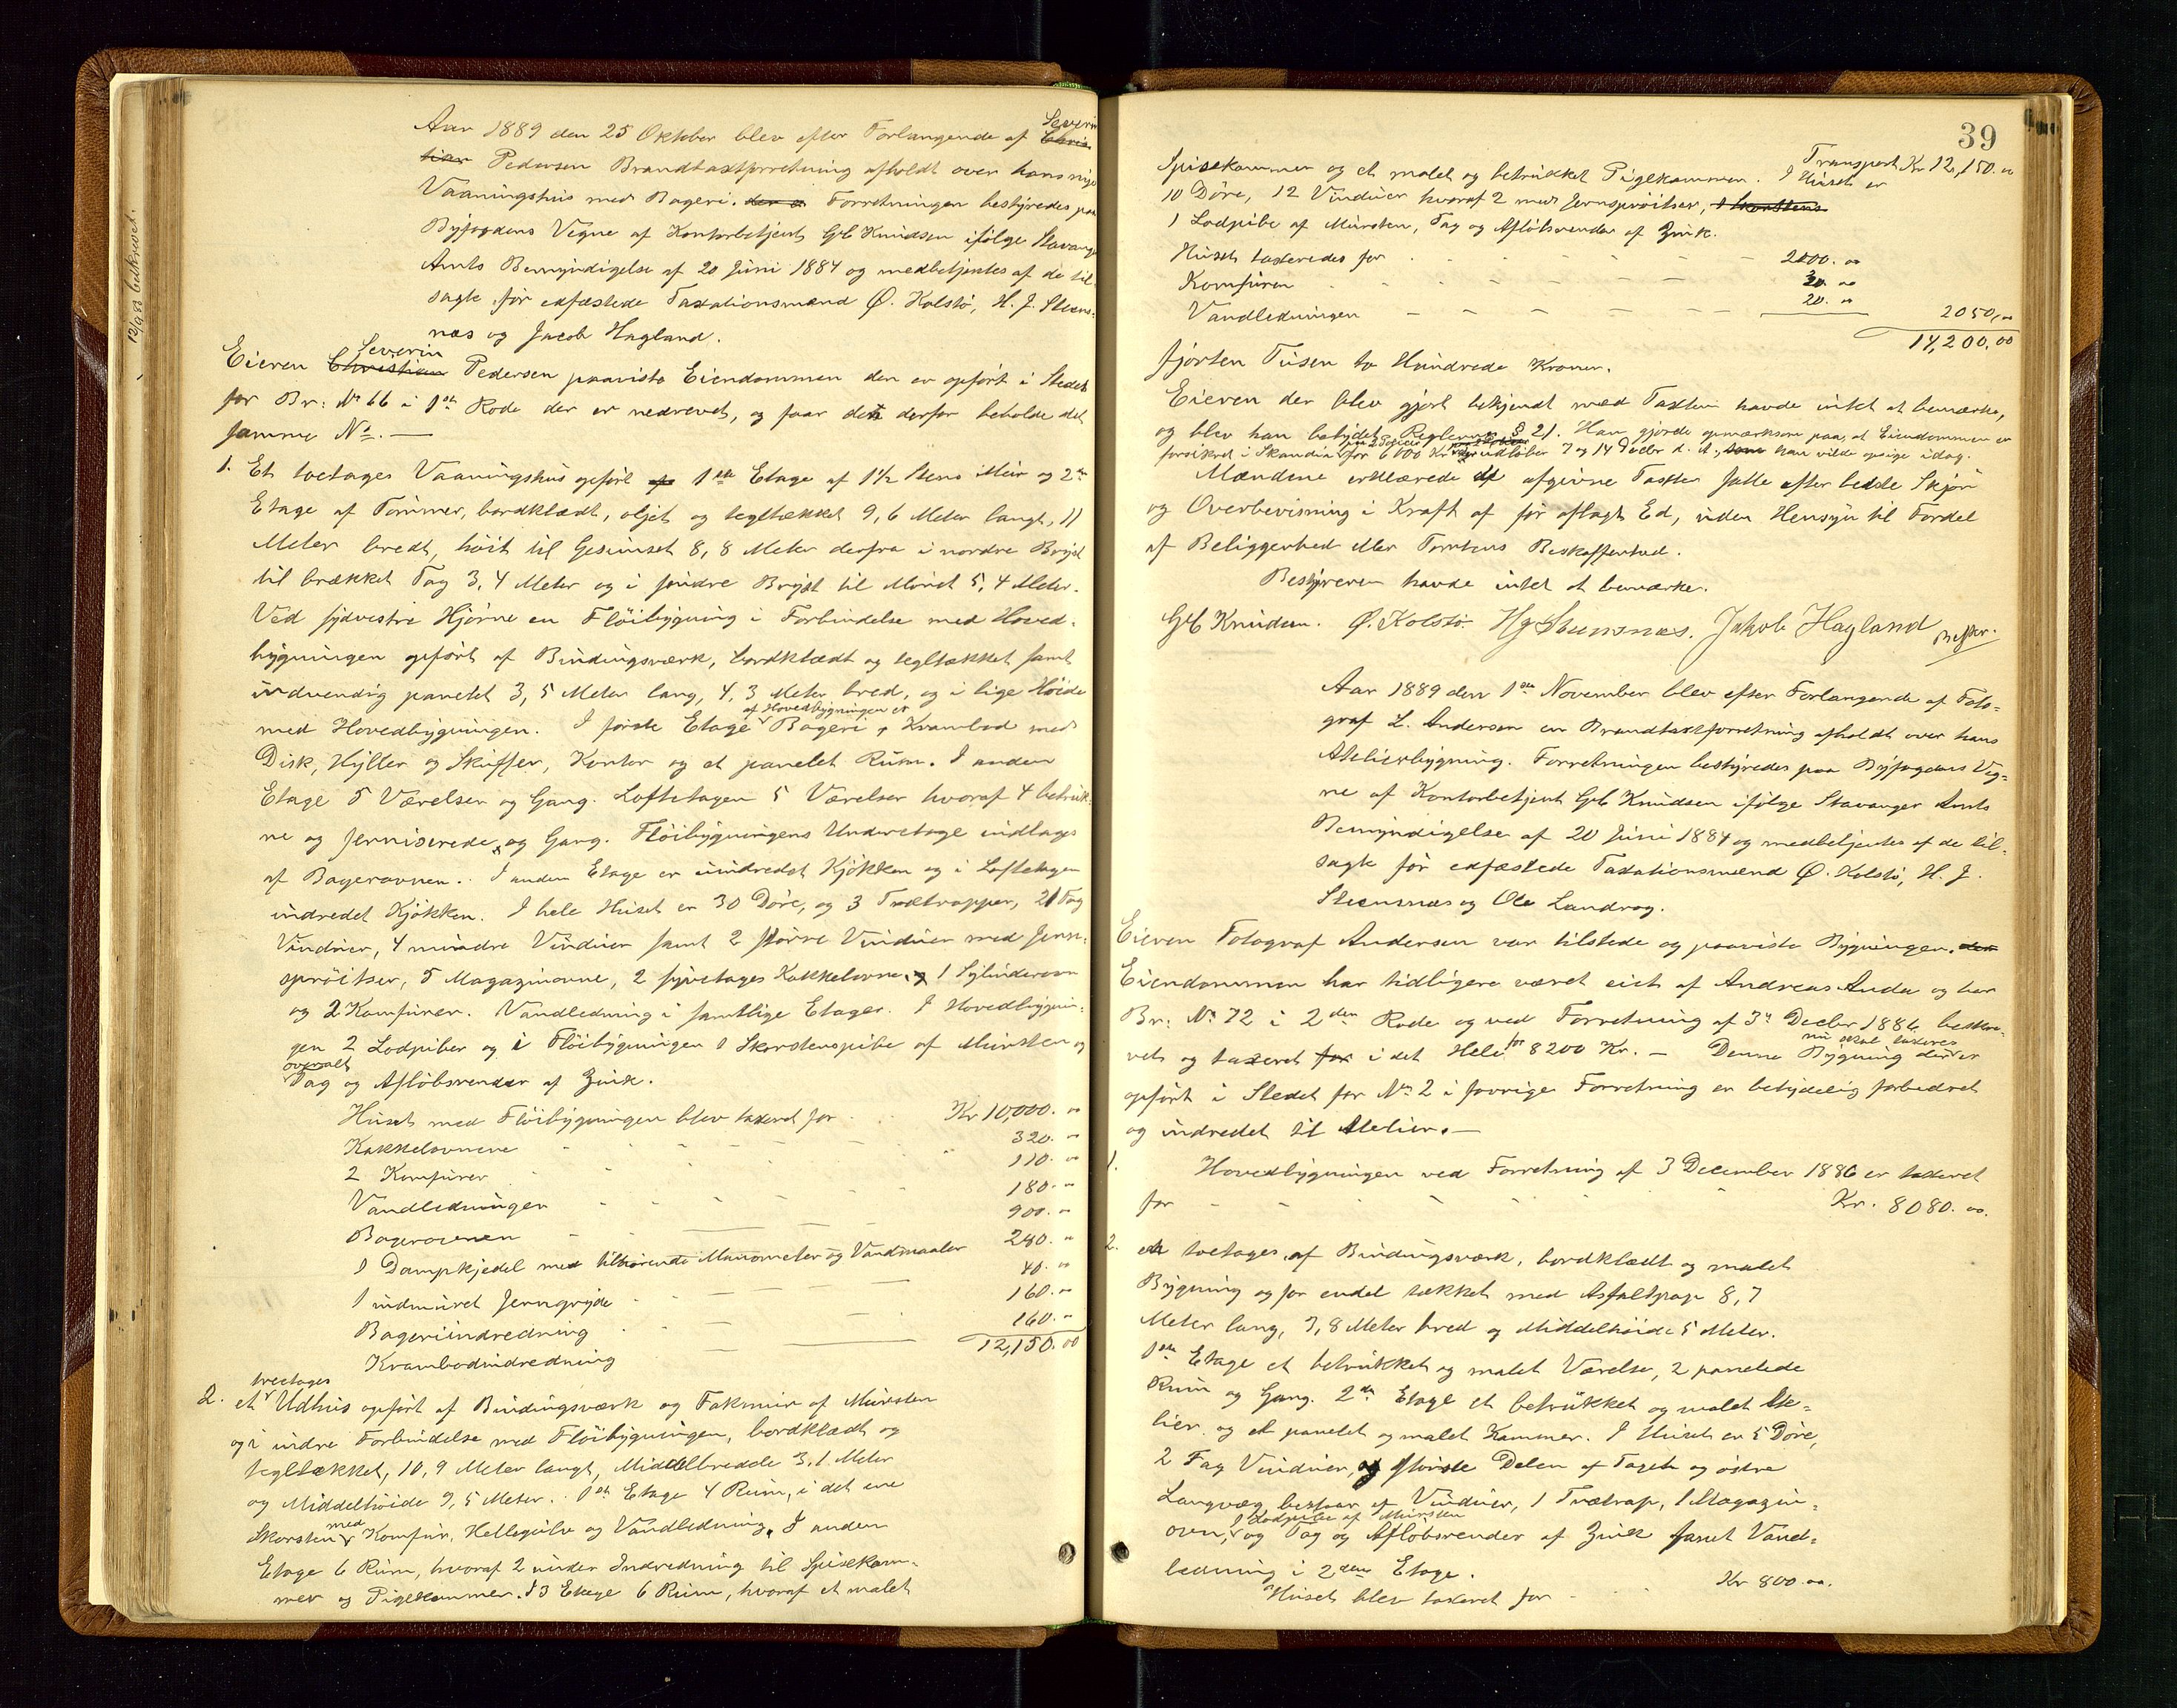 12/9 93 bekræftet.
Aar 1889 den 25 Oktober blev efter Forlangende af Severin Chris
tian Pedersen Brandtaxtforretning afholdt over hans nye
Vaaningshus med Bageri. den er Forretningen bestyredes paa
Byfogdens Vegne af Kontorbetjent Gb Knudsen ifølge Stavanger
Amts Bemyndigelse af 20 Juni 1884 og medbetjentes af de til-
sagte før edfæstede Taxationsmænd Ø. Kolstø, H. J. Steens-
næs og Jacob Hagland.
Eieren Christian Severin Pedersen paaviste Eiendommen den er opført i Stedet
for Br: No 66 i 1ste Rode der er nedrevet, og faar den derfor beholde det
samme No. —
1. Et toetages Vaaningshus opført af 1ste Etage af 1½ Stens Mur og 2den
Etage af Tømmer, bordklædt, oljet og tegltækket 9,6 Meter langt, 11
Meter bredt, høit til Gesimset 8,8 Meter derfra i nordre Bryst
til brækket Tag 3,4 Meter og i søndre Bryst til Mønet 5,4 Meter.
Ved sydvestre Hjørne en Fløibygning i Forbindelse med Hoved-
bygningen opført af Bindingsværk, bordklædt og tegltækket samt
indvendig panelet 3,5 Meter lang, 4,3 Meter bred, og i lige Høide
med Hovedbygningen. I første Etage af Hovedbygningen er Bageri, Krambod med
Disk, Hyller og Skuffer, Kontor og et panelet Rum. I anden
Etage 5 Værelser og Gang. Loftetagen 5 Værelser hvoraf 4 betruk-
ne og ferniserede, og Gang. Fløibygningens Underetage indtages
af Bagerovnen. I anden Etage er indredet Kjøkken og i Loftetagen
indredet Kjøkken. I hele Huset er 30 Døre, og 3 Trætrapper, 21 Fag
Vinduer, 4 mindre Vinduer samt 2 større Vinduer med Jern-
sprøitser, 5 Magazinovne, 2 fyretages Kakkelovne, og 1 Sylinderovn
og 2 Komfurer. Vandledning i samtlige Etager. I Hovedbygnin-
gen 2 Lodpiber og i Fløibygningen 1 Skorstenspibe af Mursten og
overalt Tag og Afløbsrender af Zink.
Huset med Fløibygningen blev taxeret for Kr 10,000. 00
Kakkelovnene 320. "
2 Komfurer 110. "
Vandledningen 180. "
Bagerovnen 900. "
1 Dampkjedel med tilhørende Manometer og Vandmaaler 280. "
1 indmuret Jerngryde 40. "
Bageriindredning 160. "
Krambodindredning 160. "
12,150. 00
2. et treetages Udhus opført af Bindingsværk og Fakmur af Mursten
og i indre Forbindelse med Fløibygningen, bordklædt og
tegltækket, 10,9 Meter langt, Middelbredde 3,1 Meter
og Middelhøide 9,5 Meter. 1ste Etage 4 Rum, i det ene
Skorsten med Komfur, Hellegulv og Vandledning. I anden
Etage 6 Rum, hvoraf 2 under Indredning til Spisekam-
mer og Pigekammer. I 3 Etage 6 Rum, hvoraf et malet
39
Transport Kr 12,150. 00
Spisekammer og et malet og betrukket Pigekammer. I Huset er
10 Døre, 12 Vinduer hvoraf 2 med Jernsprøitser, 1 Skorstens
1 Lodpibe af Mursten, Tag og Afløbsrender af Zink.
Huset taxeredes for 2000. 00
Komfuren 30. 00
Vandledningen 20. 00 2050,00
14,200.00
fjorten Tusen to Hundrede Kroner.
Eieren der blev gjort bekjendt med Taxten havde intet at bemærke,
og blev han betydet Reglerne § 21. Han gjorde opmærksom paa, at Eiendommen er
forsikret i Skandia for 6000 Kr udløber 7 og 14 Decbr d. A., som han vilde opsige idag.
Mændene erklærede at afgivne Taxter satte efter bedste Skjøn
og Overbevisning i Kraft af før aflagt Ed, uden Hensyn til Fordel
af Beliggenhed eller Tomtens Beskaffenhed.
Bestyreren havde intet at bemærke.
Gb Knudsen. Ø. Kolstø. Hj Steensnæs. Jakob Hagland
Aar 1889 den 1ste November blev efter Forlangende af Foto-
graf L. Andersen en Brandtaxtforretning afholdt over hans
Atelierbygning. Forretningen bestyredes paa Byfogdens Veg-
ne af Kontorbetjent Gb Knudsen ifølge Stavanger Amts
Bemyndigelse af 20 Juni 1884 og medbetjentes af de til-
sagte før edfæstede Taxationsmænd Ø. Kolstø, H. J.
Steensnæs og Ole Landrog.
Eieren Fotograf Andersen var tilstede og paaviste Bygningen. den
Eiendommen har tidligere været eiet af Andreas Anda og har
Br: No 72 i 2den Rode og ved Forretning af 3die Decbr 1886 beskre-
vet og taxeret for i det Hele for 8200 Kr. — Denne Bygning der nu skal taxeres er
opført i Stedet for No 2 i forrige Forretning er betydelig forbedret
og indredet til Atelier. —
1. Hovedbygningen ved Forretning af 3 December 1886 er taxeret
for Kr. 8080. 00.
2. en toetages af Bindingsværk, bordklædt og malet
Bygning og for endel tækket med Asfaltpap 8,7
Meter lang, 3,8 Meter bred og Middelhøide 5 Meter.
1ste Etage et betrukket og malet Værelse, 2 panelede
Rum og Gang. 2den Etage et betrukket og malet Ate-
lier og et panelet og malet Kammer. I Huset er 5 Døre,
2 Fag Vinduer, og største Delen af Taget og østre
Langvæg bestaar af Vinduer, 1 Trætrap, 1 Magazin-
ovn, 1 Lodpibe af Mursten og Tag og Afløbsrender af Zink samt Vand-
ledning i 2den Etage.
Huset blev taxeret for Kr 800. 00.